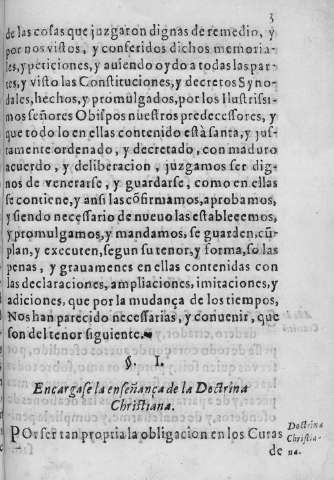 3
de las cosas que juzgaron dignas de remedio, y
por nos vistos, y conferidos dichos memoria-
les, y peticiones, y auiendo oydo a todas las par-
tes, y visto las Constituciones, y decretos Syno-
dales, hechos, y promulgados, por los Ilustrissi-
mos señores Obispos nuestros predecessores, y
que todo lo en ellas contenido està santa, y jus-
tamente ordenado, y decretado, con maduro
acuerdo, y deliberacion, juzgamos ser dig-
nos de venerarse, y guardarse, como en ellas
se contiene, y ansi las cõfirmamos, aprobamos,
y siendo necessario de nueuo las establecemos,
y promulgamos, y mandamos, se guarden, cũ-
plan, y executen, segun su tenor, y forma, so las
penas, y grauamenes en ellas contenidas con
las declaraciones, ampliaciones, imitaciones, y
adiciones, que por la mudança de los tiempos,
Nos han parecido necessarias, y conuenir, que
son del tenor siguiente.
§. I.
Encargase la enseñança de la Doctrina
Christiana.
POr ser tan propria la obligacion en los Curas
de
Doctrina
Christia-
na.